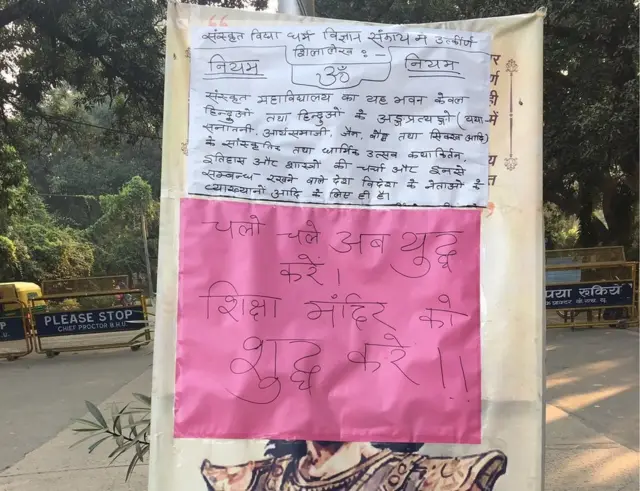 संस्कृत विद्या धर्म विज्ञान संकाय में उत्कीर्ण
शिलालेख :-
नियम ॐ नियम
संस्कृत महाविद्यालय का यह भवन केवल
हिन्दुओं तथा हिन्दुओं के अङ्गप्रत्यङ्गों (यथा-
सनातनी, आर्यसमाजी, जैन, बौद्ध तथा सिक्ख आदि)
के सांस्कृतिक तथा धार्मिक उत्सव कथाकिर्तन,
इतिहास और शास्त्रों की चर्चा और इनसे
सम्बन्ध रखने वाले देश विदेश के नेताओं के
व्याख्यानों आदि के लिए ही है।
चलो चले अब युद्ध
करें।
शिक्षा मंदिर को
शुद्ध करे !!
PLEASE STOP
CHIEF PROCTOR B.H.U.
पया रुकिये